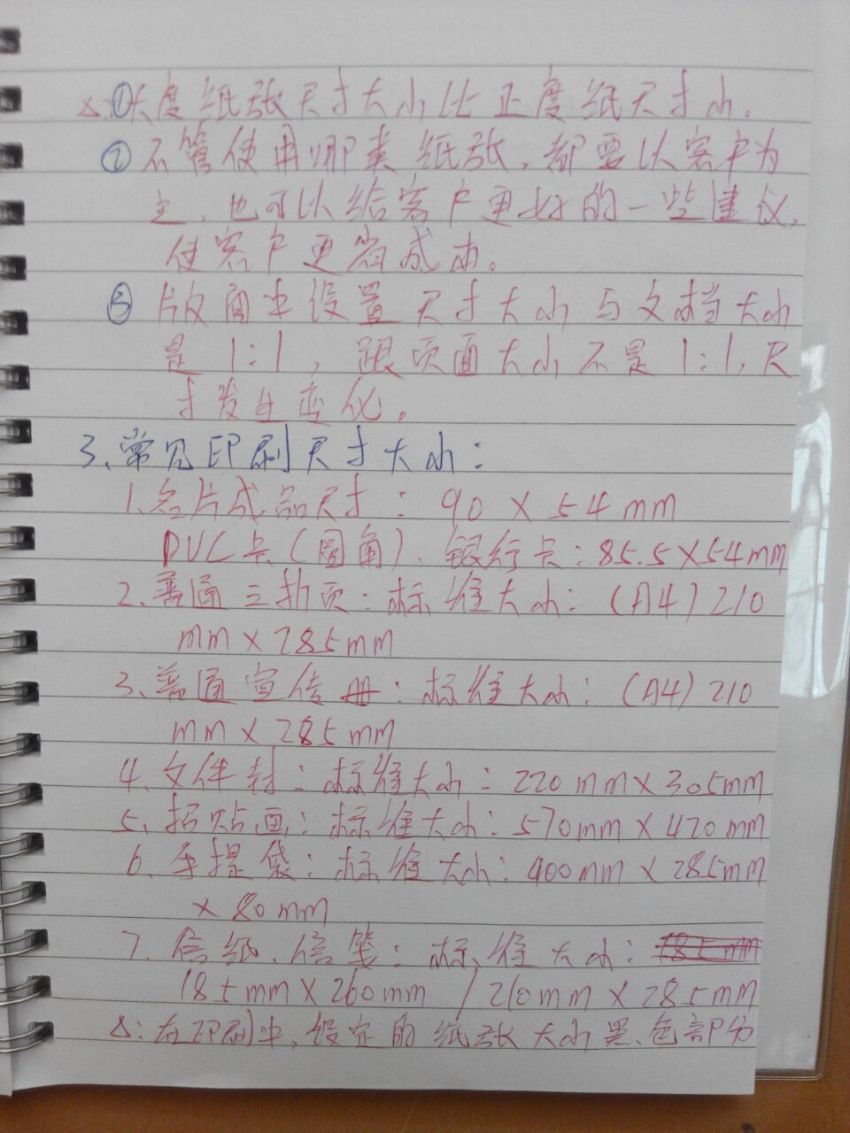 △:①大度纸张尺寸大小比正度纸尺寸小.
②不管使用哪类纸张,都要以客户为
主,也可以给客户更好的一些建议,
使客户更省成本。
③版面中设置尺寸大小与文档大小
是1:1,跟页面大小不是1:1,尺
寸发生变化。
3、常见印刷尺寸大小:
1、名片成品尺寸:90×54mm
PVC卡(圆角)、银行卡:85.5×54mm
2、普通三折页:标准大小:(A4)210
mm×285mm
3、普通宣传册:标准大小:(A4)210
mm×285mm
4、文件封:标准大小:220mm×305mm
5、招贴画:标准大小:570mm×420mm
6、手提袋:标准大小:400mm×285mm
×80mm
7、信纸、信笺:标准大小:
185mm×260mm/210mm×285mm
△:在印刷中,设定的纸张大小黑色部分